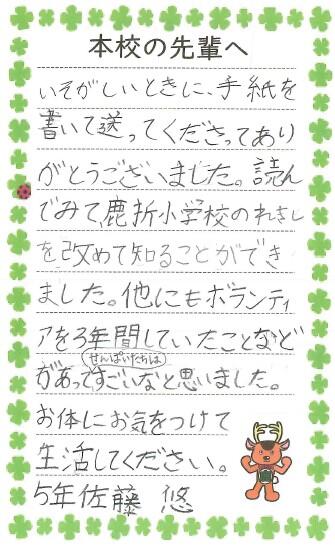 本校の先輩へ
いそがしいときに、手紙を
書いて送ってくださってあり
がとうございました。読ん
でみて、鹿折小学校のれきし
を改めて知ることができ
ました。他にもボランティ
アを3年間していたことなど
せんぱいたちは
があってすごいなと思いました。
お体にお気をつけて
生活してください。
5年佐藤 悠